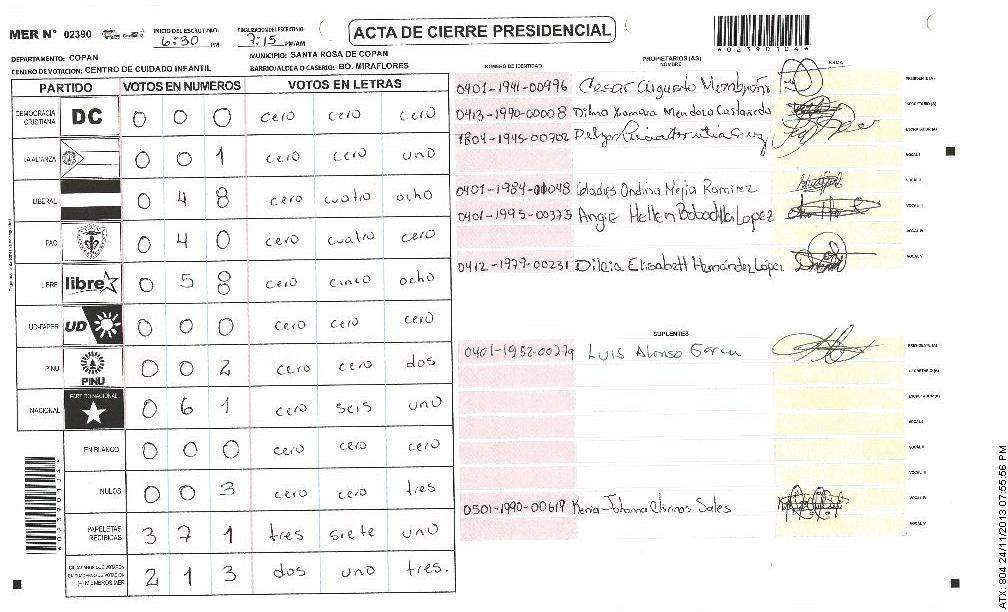 MER N° 02390 INICIO DEL ESCRUTINIO: 6:30 PM FINALIZACION DEL ESCRUTINIO: 7:15 PM/AM ACTA DE CIERRE PRESIDENCIAL
A02390104A
DEPARTAMENTO: COPAN MUNICIPIO: SANTA ROSA DE COPAN
CENTRO DE VOTACION: CENTRO DE CUIDADO INFANTIL BARRIO/ALDEA O CASERIO: BO. MIRAFLORES
PARTIDO VOTOS EN NUMEROS VOTOS EN LETRAS
DEMOCRACIA CRISTIANA DC 0 0 0 cero cero cero
LA ALIANZA 0 0 1 cero cero uno
LIBERAL 0 4 8 cero cuatro ocho
PAC 0 4 0 cero cuatro cero
LIBRE libre 0 5 8 cero cinco ocho
UD-FAPER UD 0 0 0 cero cero cero
PINU PINU 0 0 2 cero cero dos
NACIONAL PARTIDO NACIONAL 0 6 1 cero seis uno
EN BLANCO 0 0 0 cero cero cero
NULOS 0 0 3 cero cero tres
PAPELETAS RECIBIDAS 3 7 1 tres siete uno
CIUDADANOS QUE VOTARON EN CUADERNO DE VOTACION (+) MIEMBROS MER 2 1 3 dos uno tres.
A02390104A
PROPIETARIOS (AS)
NUMERO DE IDENTIDAD NOMBRE FIRMA
0401-1941-00996 Cesar Augusto PRESIDENTE (A)
0413-1990-00008 Dilma Xiomara Mendoza Castaneda SECRETARIO (A)
1804-1945-00702 ESCRUTADOR (A)
VOCAL I
0401-1984-00048 Gladys Ondina Mejia Ramirez VOCAL II
0401-1993-00375 Angie Hellem Bobadilla Lopez VOCAL III
VOCAL IV
0412-1979-00231 Dilcia Elisabett Hernández López VOCAL V
SUPLENTES
0401-1952-00279 Luis Alonso PRESIDENTE (A)
SECRETARIO (A)
ESCRUTADOR (A)
VOCAL I
VOCAL II
VOCAL III
0501-1990-00619 Kenia Johana Chirinos Sales VOCAL IV
VOCAL V
ATX: 804 24/11/2013 07:55:56 PM